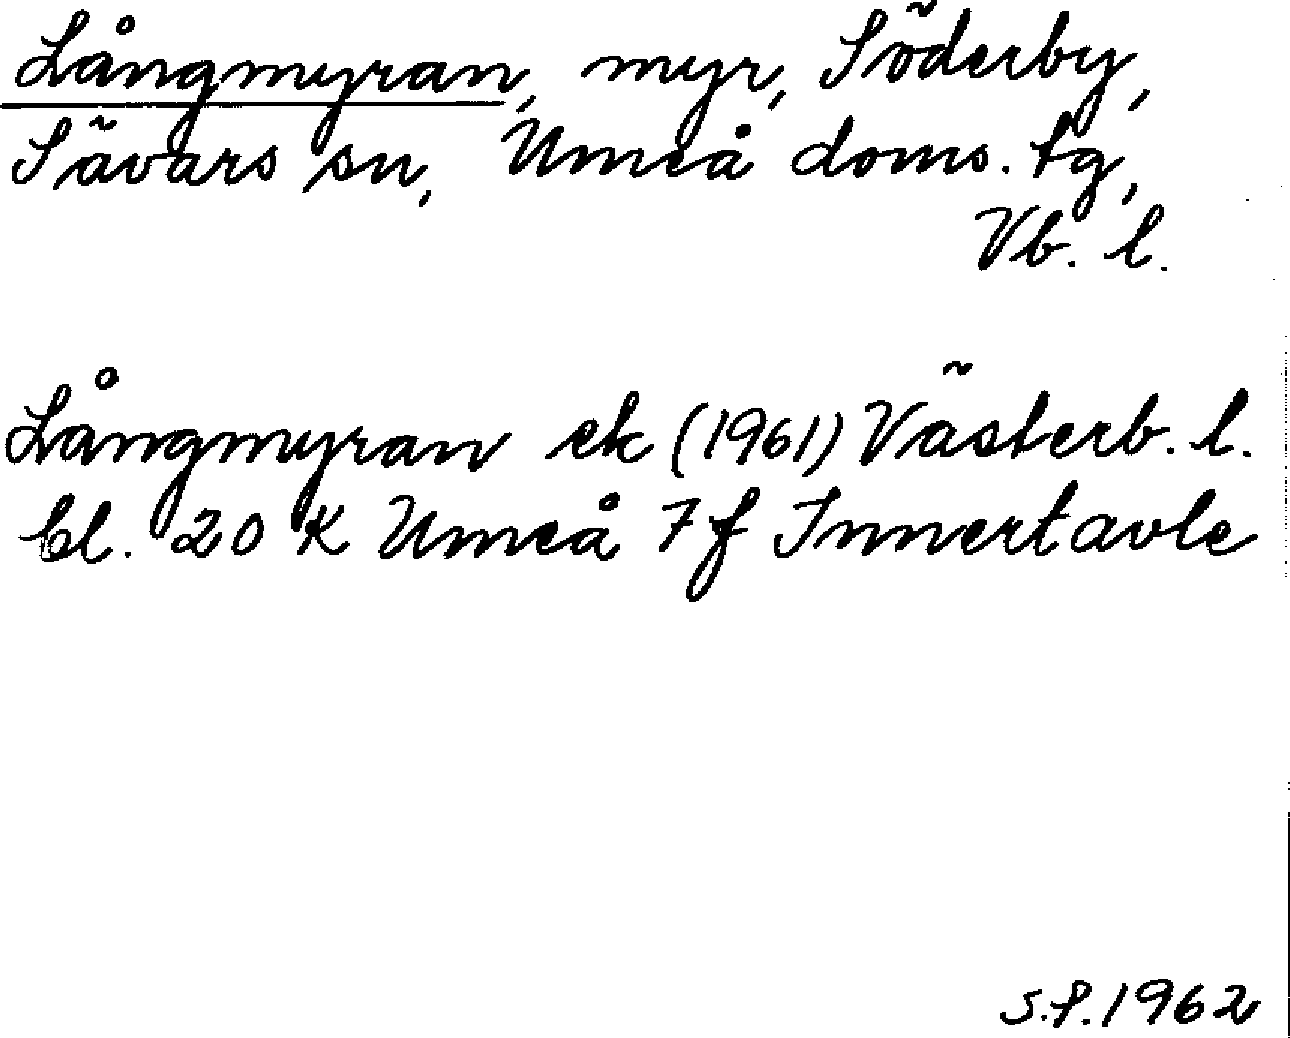 Långmyran, myr, Söderby,
Sävars sn, Umeå doms. tg,
Vb. l.
Långmyran ek (1961) Västerb. l.
bl. 20 K Umeå 7 f Innertavle
S.P. 1962